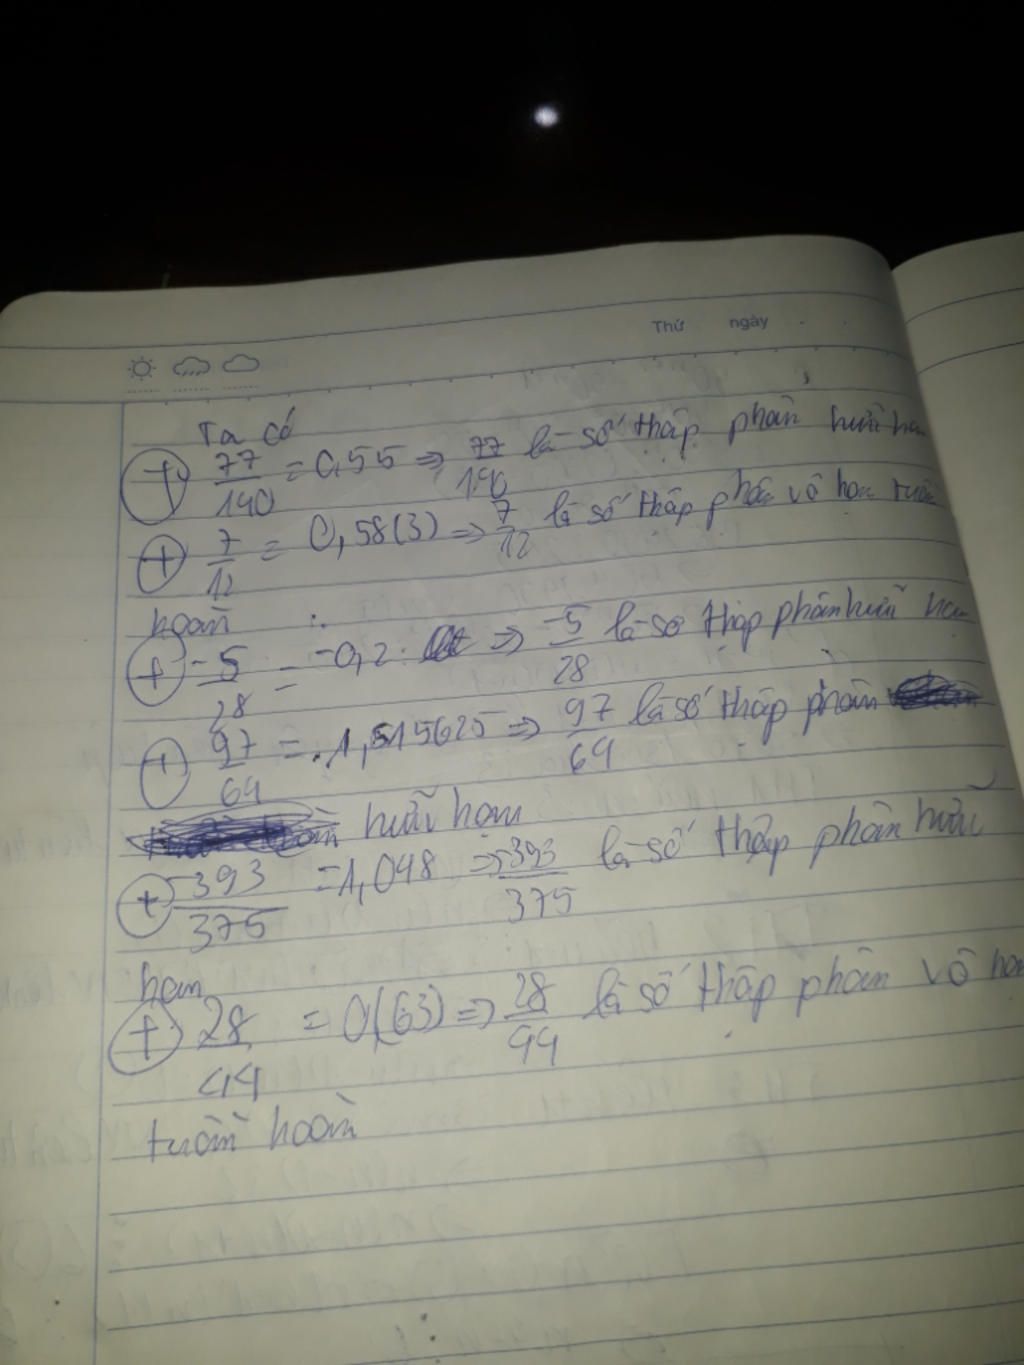 Thứ ngày
Ta có
+ 77/140 = 0,55 => 77/140 là số thập phân hữu hạn
+ 7/12 = 0,58(3) => 7/12 là số thập phân vô hạn tuần
hoàn
+ -5/28 = -0,2 => -5/28 là số thập phân hữu hạn
+ 97/64 = 1,515625 => 97/64 là số thập phân
hữu hạn
+ -393/375 = 1,048 => -393/375 là số thập phân hữu
hạn
+ 28/44 = 0,(63) => 28/44 là số thập phân vô hạn
tuần hoàn